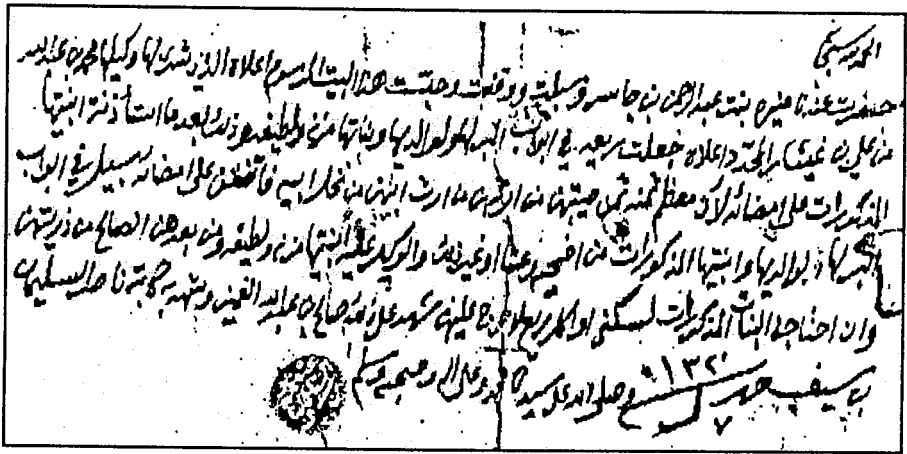 الحمد لله سبحانه
حضرت عنده منيره بنت عبدالرحمن بن جاسر وسبلت ووقفت وحبست هذا البيت المرسوم اعلاه الذي شرى لها وكيلها محمد بن عبدالله
بن علي بن غيث المحدد اعلاه جعلت ريعه في ابواب البر لها ولوالديها وبناتها مزن ولطيفه وذلك بعد ما استأذنت ابنتيها
المذكورات على امضائه لان معظم ثمنه من ارث من فاتفقن على امضائه سبيل في ابواب
البر لها ولوالديها وابنتيها المذكورات من اضحيه وعشا او غير ذلك والوكيل عليه ابنتيها مزن ولطيفه ومن بعدهن الصالح من ذريتهن
وان احتاجن البنات المذكورات لسكنى او اكل ريع فلا حرج عليهن شهد على ذلك صالح بن عبدالله وشهد به كاتبه ناصر السليمان
بن سيف حرر ١٣٢٠ ٧ وصلى الله على سيدنا محمد وعلى اله وصحبه وسلم